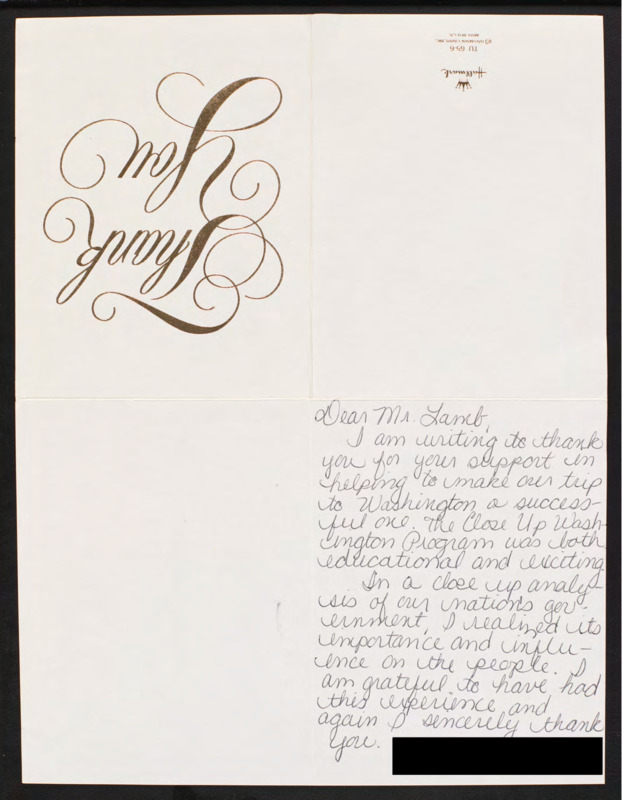 Thank
You
Hallmark
TU 65-6
Dear Mr. Lamb,
I am writing to thank
you for your support in
helping to make our trip
to Washington a success-
ful one. The Close Up Wash-
ington Program was both
educational and exciting.
In a close up analy-
sis of our nation's gov-
ernment, I realized its
importance and influ-
ence on the people. I
am grateful to have had
this experience, and
again I sincerely thank
you.